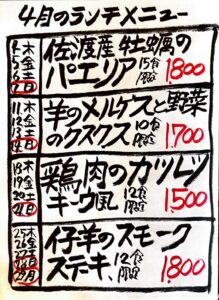 4月のランチメニュー
4.木
5.金
6.土
7.日
佐渡産牡蠣の
パエリア 15食限定 1800
11.木
12.金
13.土
14.日
羊のメルゲスと野菜
のクスクス 10食限定 1700
18.木
19.金
20.土
21.日
鶏肉のカツレツ
キーウ風 12食限定 1,500
25.木
26.金
27.土
28.日
29.月
仔羊のスモーク
ステキ、12食限定 1,800